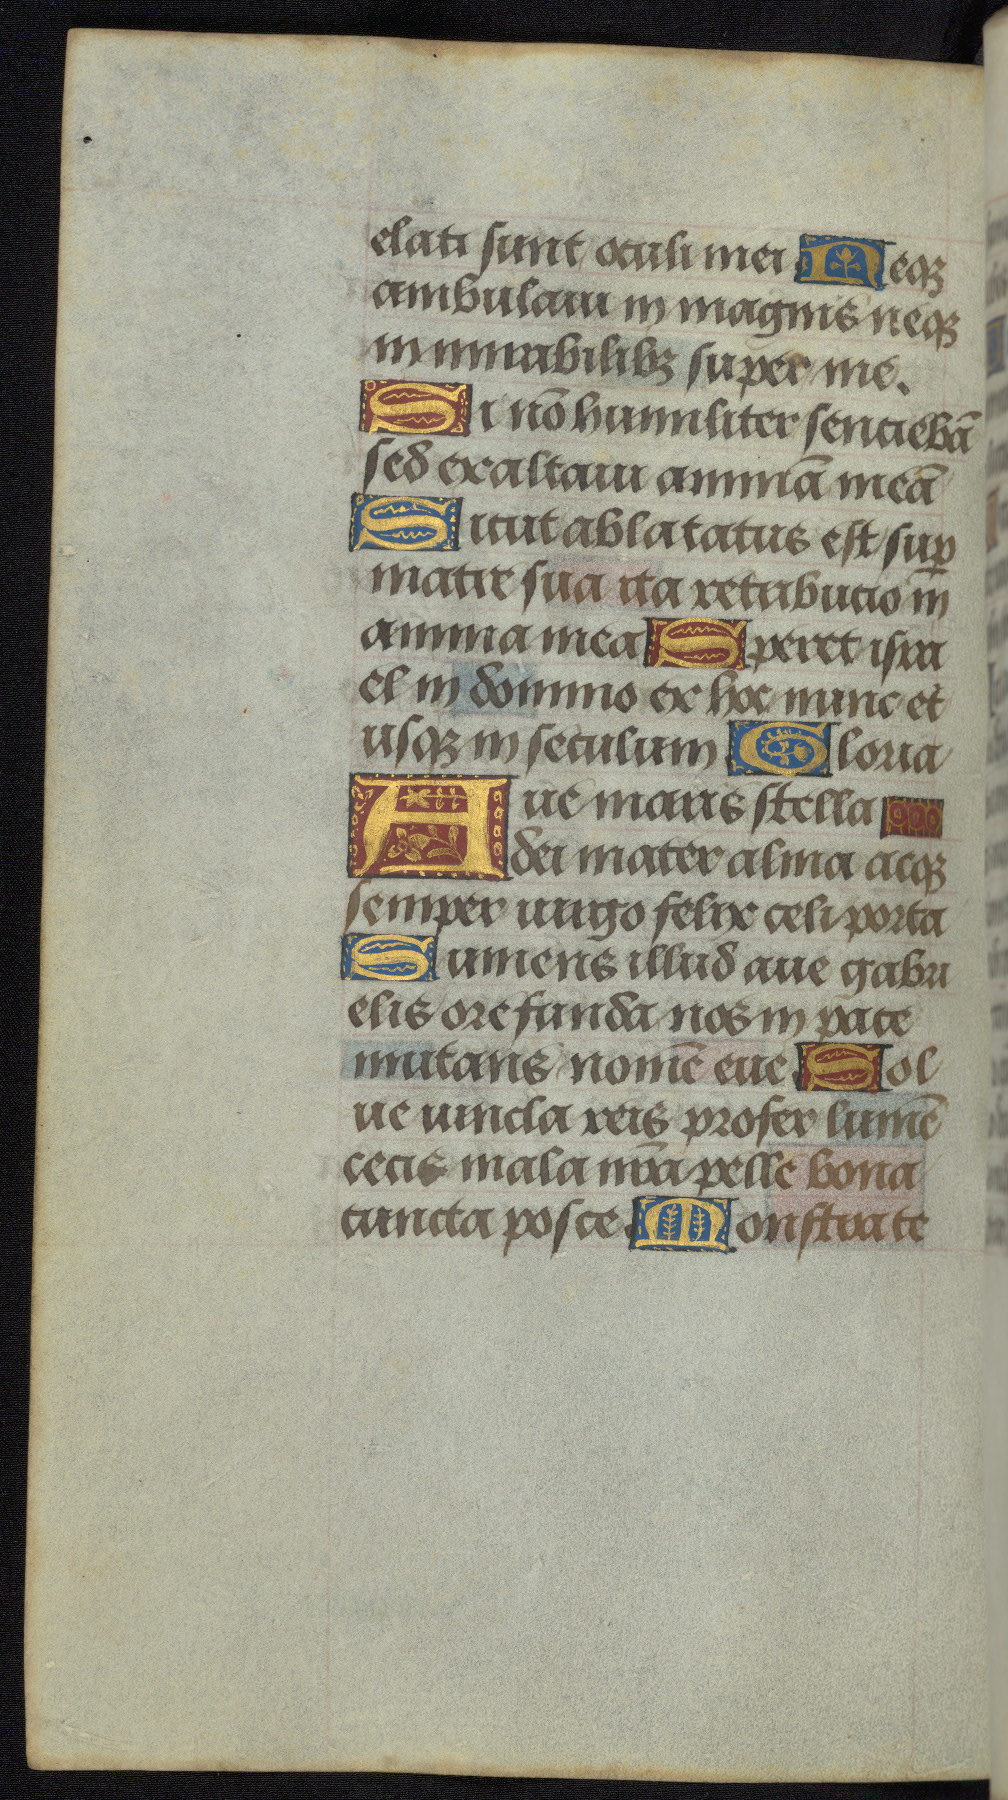 elati sunt oculi mei Neqꝫ
ambulaui in magnis neqꝫ
in mirabilibꝫ super me.
Si nō humiliter senciebā
sed exaltaui animā meā
Sicut ablatatus est suꝑ
matre sua ita retribucio in
anima mea Speret isra
el in domino ex hoc nunc et
usqꝫ in seculum Gloria
Aue maris stella
dei mater alma atqꝫ
semper uirgo felix celi porta
Sumens illud aue gabri
elis ore funda nos in pace
mutans nomē eue Sol
ue uincla reis profer lumē
cecis mala nrā pelle bona
cuncta posce Monstra te